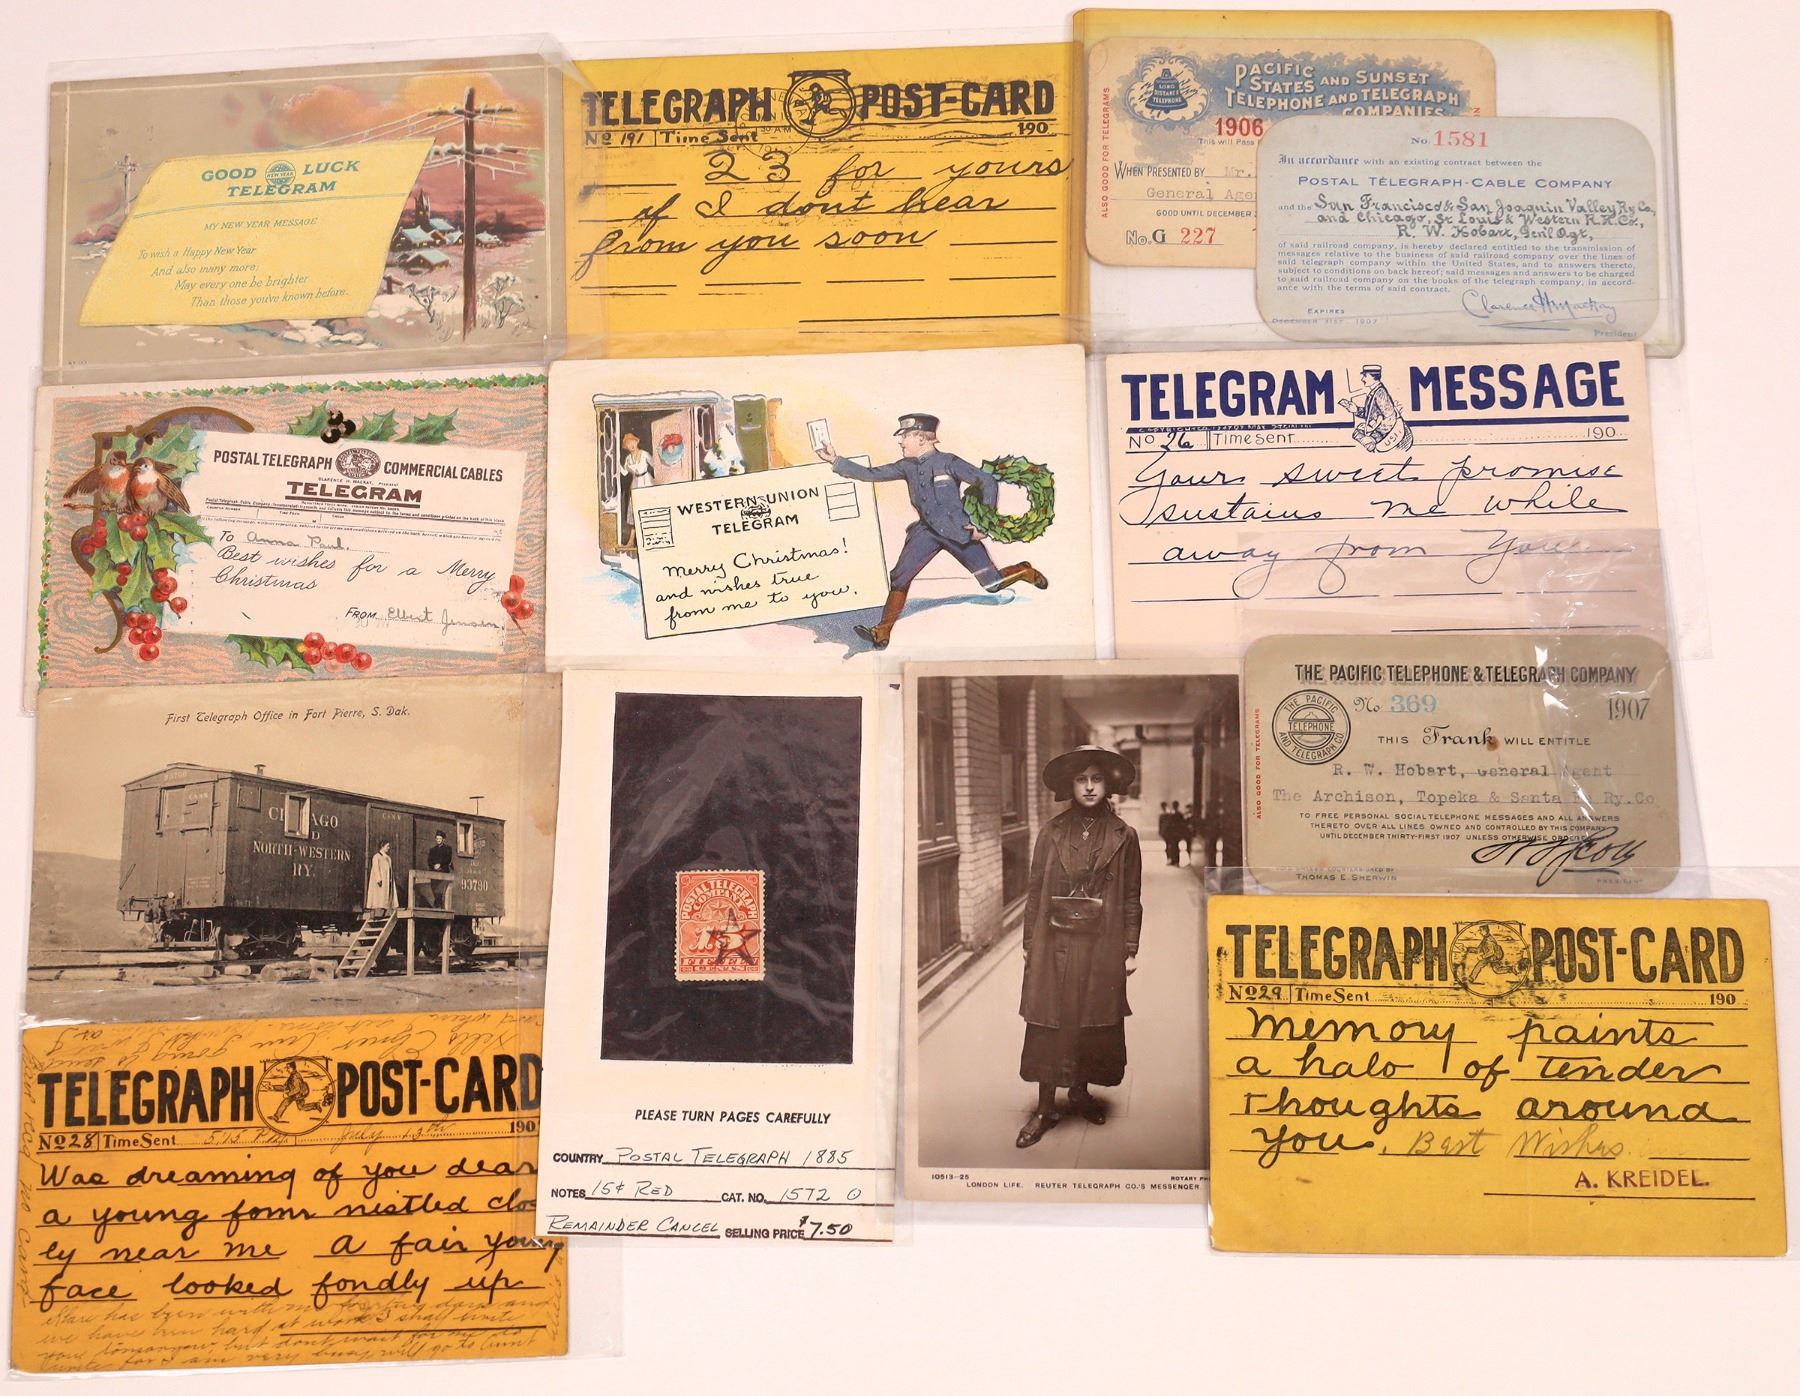 GOOD LUCK
NEW YEAR
TELEGRAM
MY NEW YEAR MESSAGE
To wish a Happy New Year
And also many more;
May every one be brighter
Than those you've known before.
TELEGRAPH POST-CARD
No 191 Time Sent 190
23 for yours
if I dont hear
from you soon
PACIFIC
STATES AND SUNSET
TELEPHONE AND TELEGRAPH
COMPANIES
LONG
DISTANCE
TELEPHONE
ALSO GOOD FOR TELEGRAMS
1906
This will Pass
WHEN PRESENTED BY Mr.
General Agen
GOOD UNTIL DECEMBER
No. G 227
No. 1581
In accordance with an existing contract between the
POSTAL TELEGRAPH-CABLE COMPANY
and the San Francisco & San Joaquin Valley Ry Co,
and Chicago, St Louis & Western R.R. Co.,
R. W. Hobart, Gen'l Agt,
of said railroad company, is hereby declared entitled to the transmission of
messages relative to the business of said railroad company over the lines of
said telegraph company within the United States, and to answers thereto,
subject to conditions on back hereof; said messages and answers to be charged
to said railroad company on the books of the telegraph company, in accord-
ance with the terms of said contract.
EXPIRES
DECEMBER 31ST, 1907
Clarence H Mackay
President
POSTAL TELEGRAPH COMMERCIAL CABLES
CLARENCE H. MACKAY, President
TELEGRAM
To Anna Paul.
Best wishes for a Merry
Christmas
FROM Elbert Jensen
WESTERN UNION
TELEGRAM
Merry Christmas!
and wishes true
from me to you.
TELEGRAM MESSAGE
No 26 Time Sent 190
Your sweet promise
sustains me while
away from You
First Telegraph Office in Fort Pierre, S. Dak.
CHICAGO
NORTH-WESTERN
RY.
93790
POSTAL TELEGRAPH
COMPANY
15
FIFTEEN
CENTS
PLEASE TURN PAGES CAREFULLY
COUNTRY POSTAL TELEGRAPH 1885
NOTES 15¢ RED CAT. NO. 15T2 O
REMAINDER CANCEL SELLING PRICE $7.50
10513-25
ROTARY PH
LONDON LIFE. REUTER TELEGRAPH CO.'S MESSENGER.
THE PACIFIC TELEPHONE & TELEGRAPH COMPANY
THE PACIFIC
TELEPHONE
AND TELEGRAPH CO.
No 369 1907
THIS Frank WILL ENTITLE
R. W. Hobart, General Agent
The Archison, Topeka & Santa Ry. Co
TO FREE PERSONAL SOCIAL TELEPHONE MESSAGES AND ALL ANSWERS
THERETO OVER ALL LINES OWNED AND CONTROLLED BY THIS COMPANY
UNTIL DECEMBER THIRTY-FIRST 1907 UNLESS OTHERWISE ORDERED
ALSO GOOD FOR TELEGRAMS
THOMAS E. SHERWIN
PRESIDENT
TELEGRAPH POST-CARD
No 28 Time Sent 5.15 PM July 13th 190
Was dreaming of you dear
a young form nestled clos
ly near me A fair young
face looked fondly up
TELEGRAPH POST-CARD
No 29 Time Sent 190
Memory paints
a halo of tender
thoughts around
you. Best Wishes
A. KREIDEL.